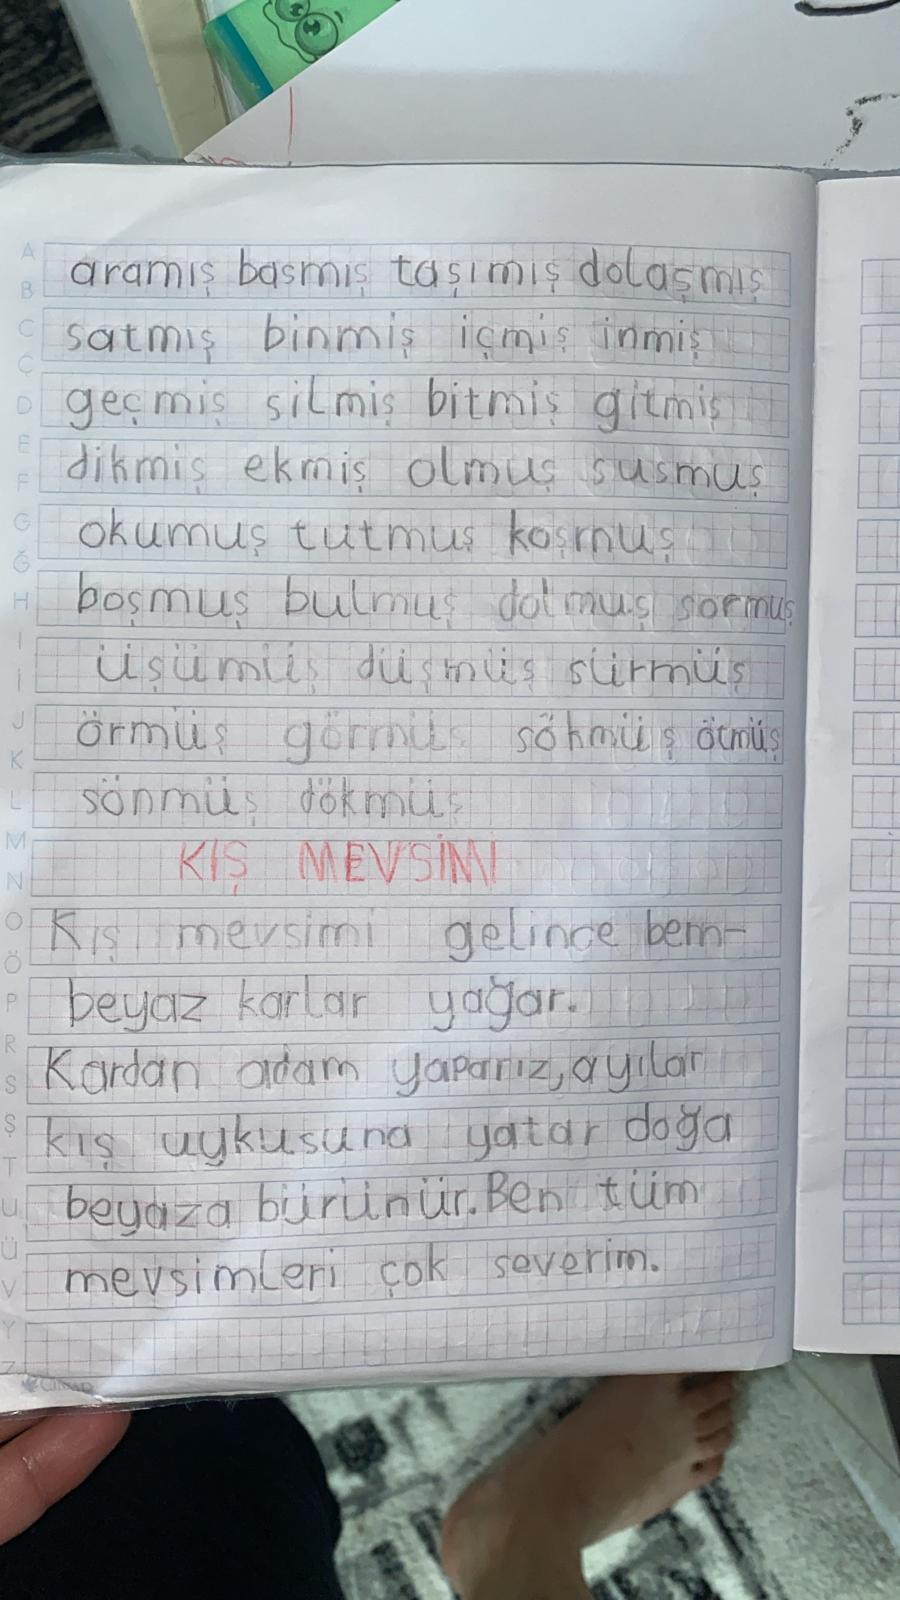 aramış basmış taşımış dolaşmış
satmış binmiş içmiş inmiş
geçmiş silmiş bitmiş gitmiş
dikmiş ekmiş olmuş susmuş
okumuş tutmuş koşmuş
boşmuş bulmuş dolmuş sormuş
üşümüş düşmüş sürmüş
örmüş görmüş sökmüş ötmüş
sönmüş dökmüş
KIŞ MEVSİMİ
Kış mevsimi gelince bem-
beyaz karlar yağar.
Kardan adam yaparız, ayılar
kış uykusuna yatar doğa
beyaza bürünür. Ben tüm
mevsimleri çok severim.
A
B
C
Ç
D
E
F
G
Ğ
H
I
İ
J
K
L
M
N
O
Ö
P
R
S
Ş
T
U
Ü
V
Y
Z